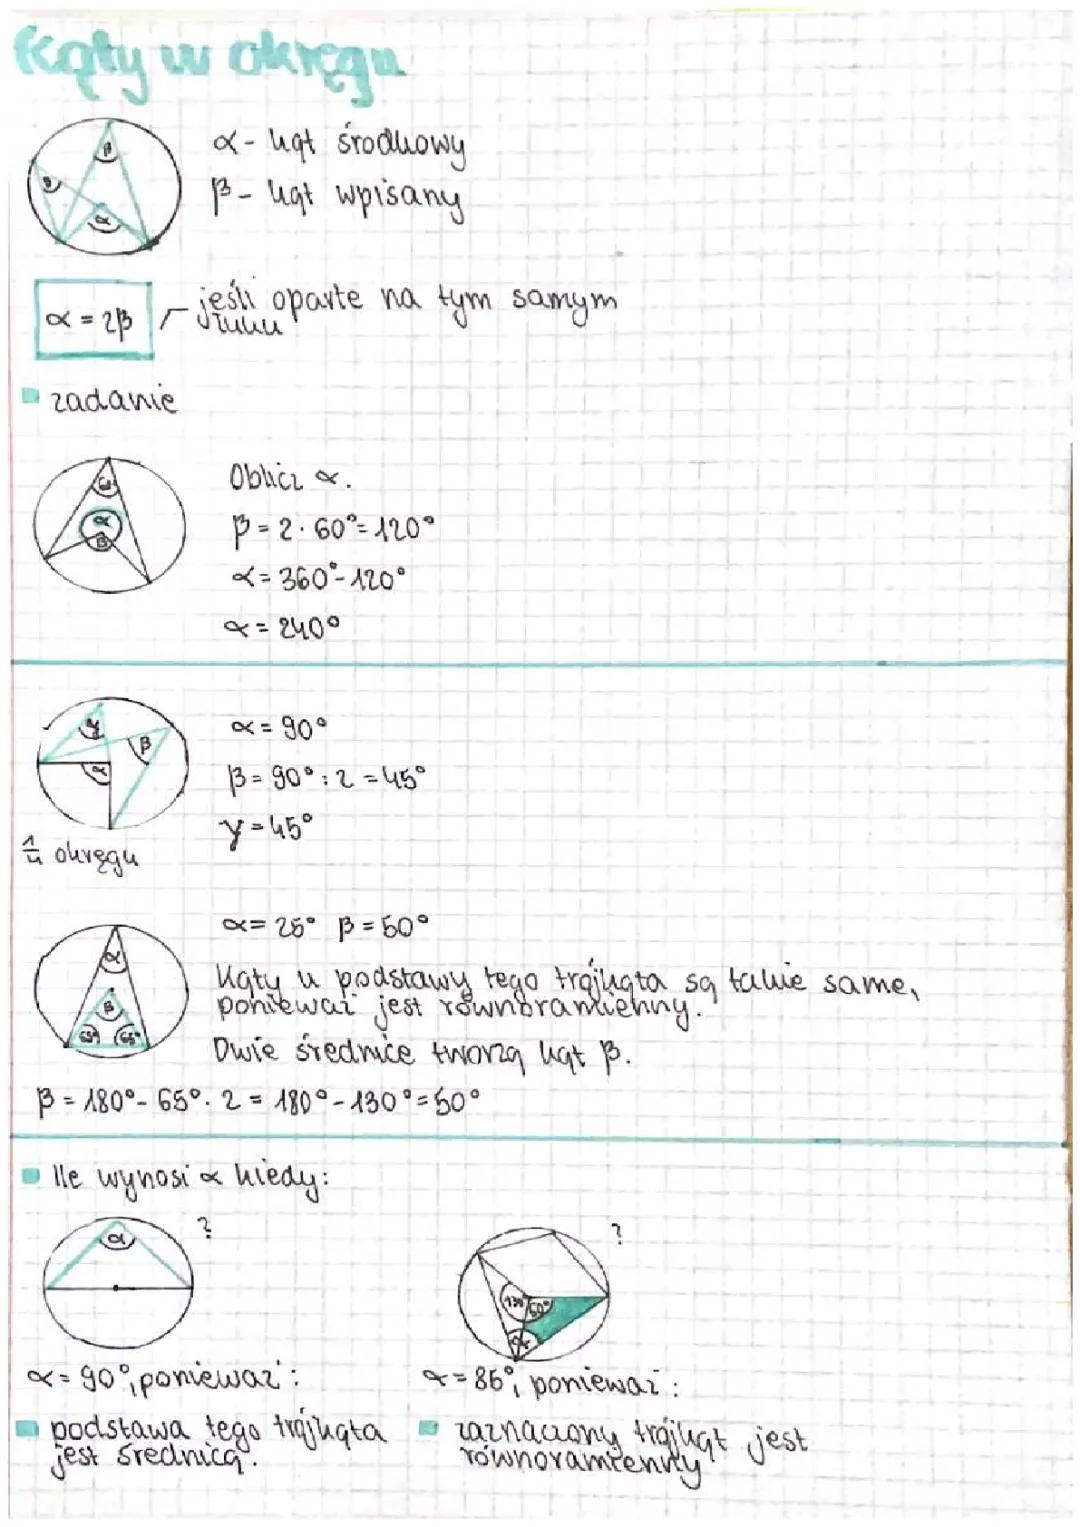 Kąty w okręgu
β
β
α
α - kąt środkowy
β - kąt wpisany
α = 2β
jeśli oparte na tym samym
łuku
zadanie
60°
α
β
Oblicz α.
β = 2 · 60° = 120°
α = 360° - 120°
α = 240°
γ
β
α
α = 90°
β = 90° : 2 = 45°
γ = 45°
1/4 okręgu
α
β
65° 65°
α = 25° β = 50°
Kąty u podstawy tego trójkąta są takie same,
ponieważ jest równoramienny.
Dwie średnice tworzą kąt β.
β = 180° - 65° · 2 = 180° - 130° = 50°
Ile wynosi α kiedy:
α
?
130° 60°
α
?
α = 90°, ponieważ:
podstawa tego trójkąta
jest średnicą.
α = 85°, ponieważ:
zaznaczony trójkąt jest
równoramienny